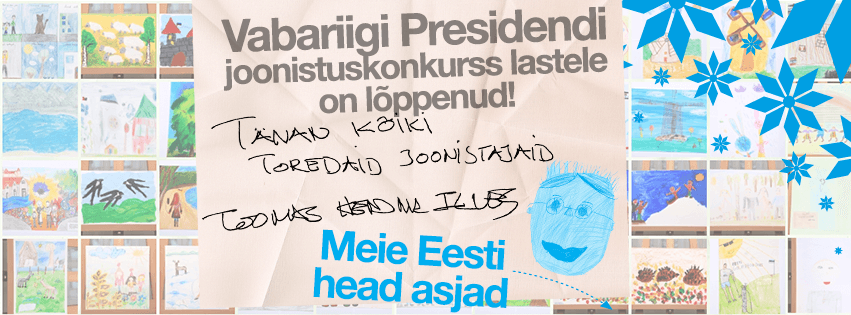 Vabariigi Presidendi
joonistuskonkurss lastele
on lõppenud!
TÄNAN KÕIKI
TOREDAID JOONISTAJAID
TOOMAS HENDRIK ILVES
Meie Eesti
head asjad